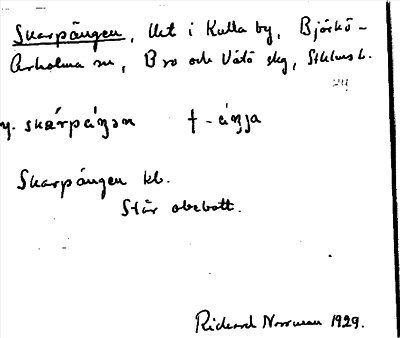 Skarpängen, Utt i Kulla by, Björkö-
Arholma sn, Bro och Vätö skg, Sthlms l.
y. skárpäŋən † -äŋja
Skarpängen kb.
Står obebott.
Rickard Norrman 1929.